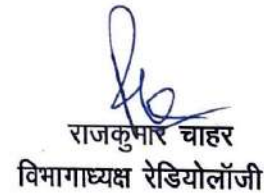 राजकुमार चाहर
विभागाध्यक्ष रेडियोलॉजी